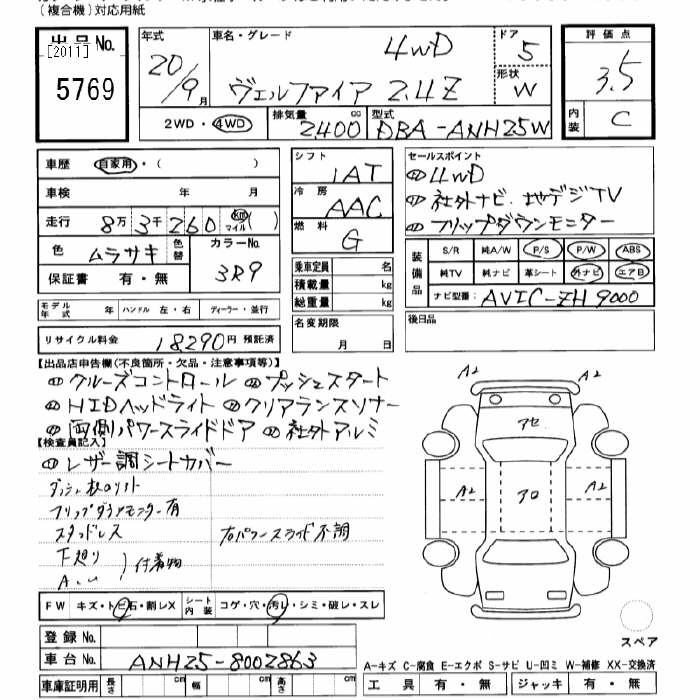 (複合機)対応用紙
出品No.
[2011]
5769
年式
20/9月
車名・グレード
4WD
ヴェルファイア 2.4Z
ドア
5
形状
W
評価点
3.5
内装
C
2WD・4WD
排気量
2400cc
型式
DBA-ANH25W
車歴 自家用・( )
車検 年 月
走行 8万3千260 km マイル( )
色 ムラサキ 色替
カラーNo.
3R9
保証書 有・無
シフト
1AT
冷房
AAC
燃料
G
乗車定員 名
積載量 kg
総重量 kg
セールスポイント
4WD
社外ナビ.地デジTV
フリップダウンモニター
装備品
S/R 純A/W P/S P/W ABS
純TV 純ナビ 革シート 外ナビ エアB
ナビ型番: AVIC-ZH9000
モデル年式 年 ハンドル 左・右 ディーラー・並行
リサイクル料金 18290円 預託済
名変期限
月 日
後日品
【出品店申告欄(不良箇所・欠品・注意事項等)】
クルーズコントロール プッシュスタート
HIDヘッドライト クリアランスソナー
両側パワースライドドア 社外アルミ
【検査員記入】
レザー調シートカバー
フリップダウンモニター有
スタッドレス
右パワースライド不調
下廻り
付着物
A2
A2
アセ
A2
アロ
A2
A2
A2
FW キズ・トビ石・割レX
シート内装 コゲ・穴・汚レ・シミ・破レ・スレ
登録No.
車台No. ANH25-8002863
車庫証明用 長さ cm 幅 cm 高さ cm
スペア
A-キズ C-腐食 E-エクボ S-サビ U-凹ミ W-補修 XX-交換済
工具 有・無 ジャッキ 有・無